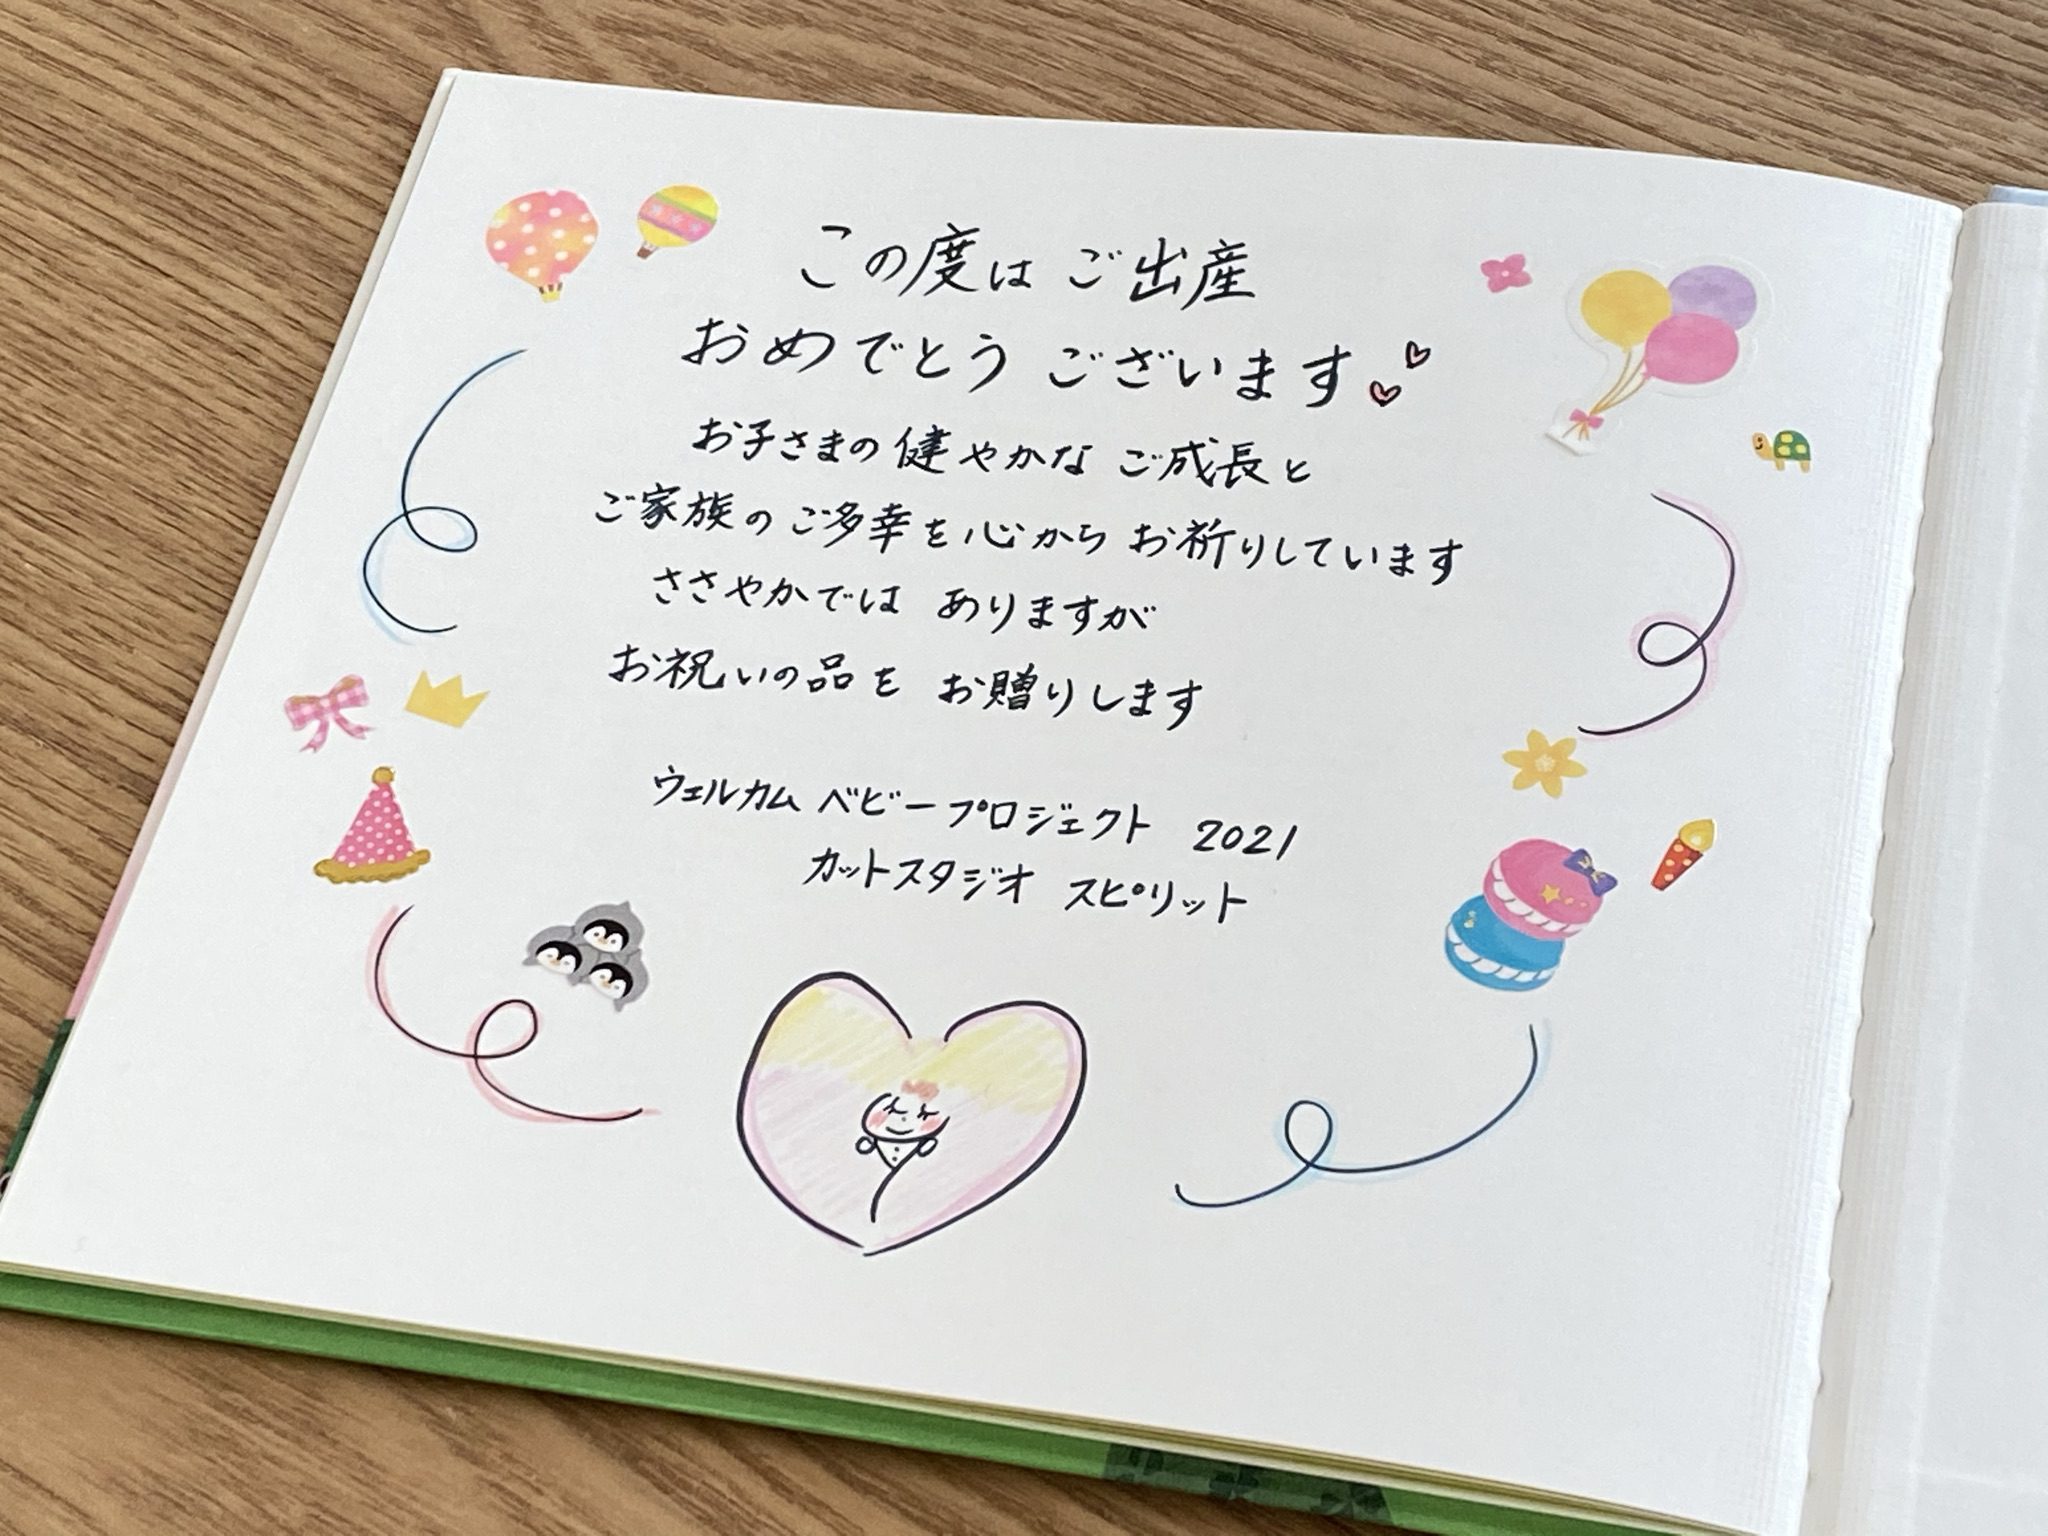 この度は ご出産
おめでとう ございます
お子さまの健やかな ご成長と
ご家族のご多幸を心から お祈りしています
ささやかでは ありますが
お祝いの品を お贈りします
ウェルカム ベビープロジェクト 2021
カットスタジオ スピリット